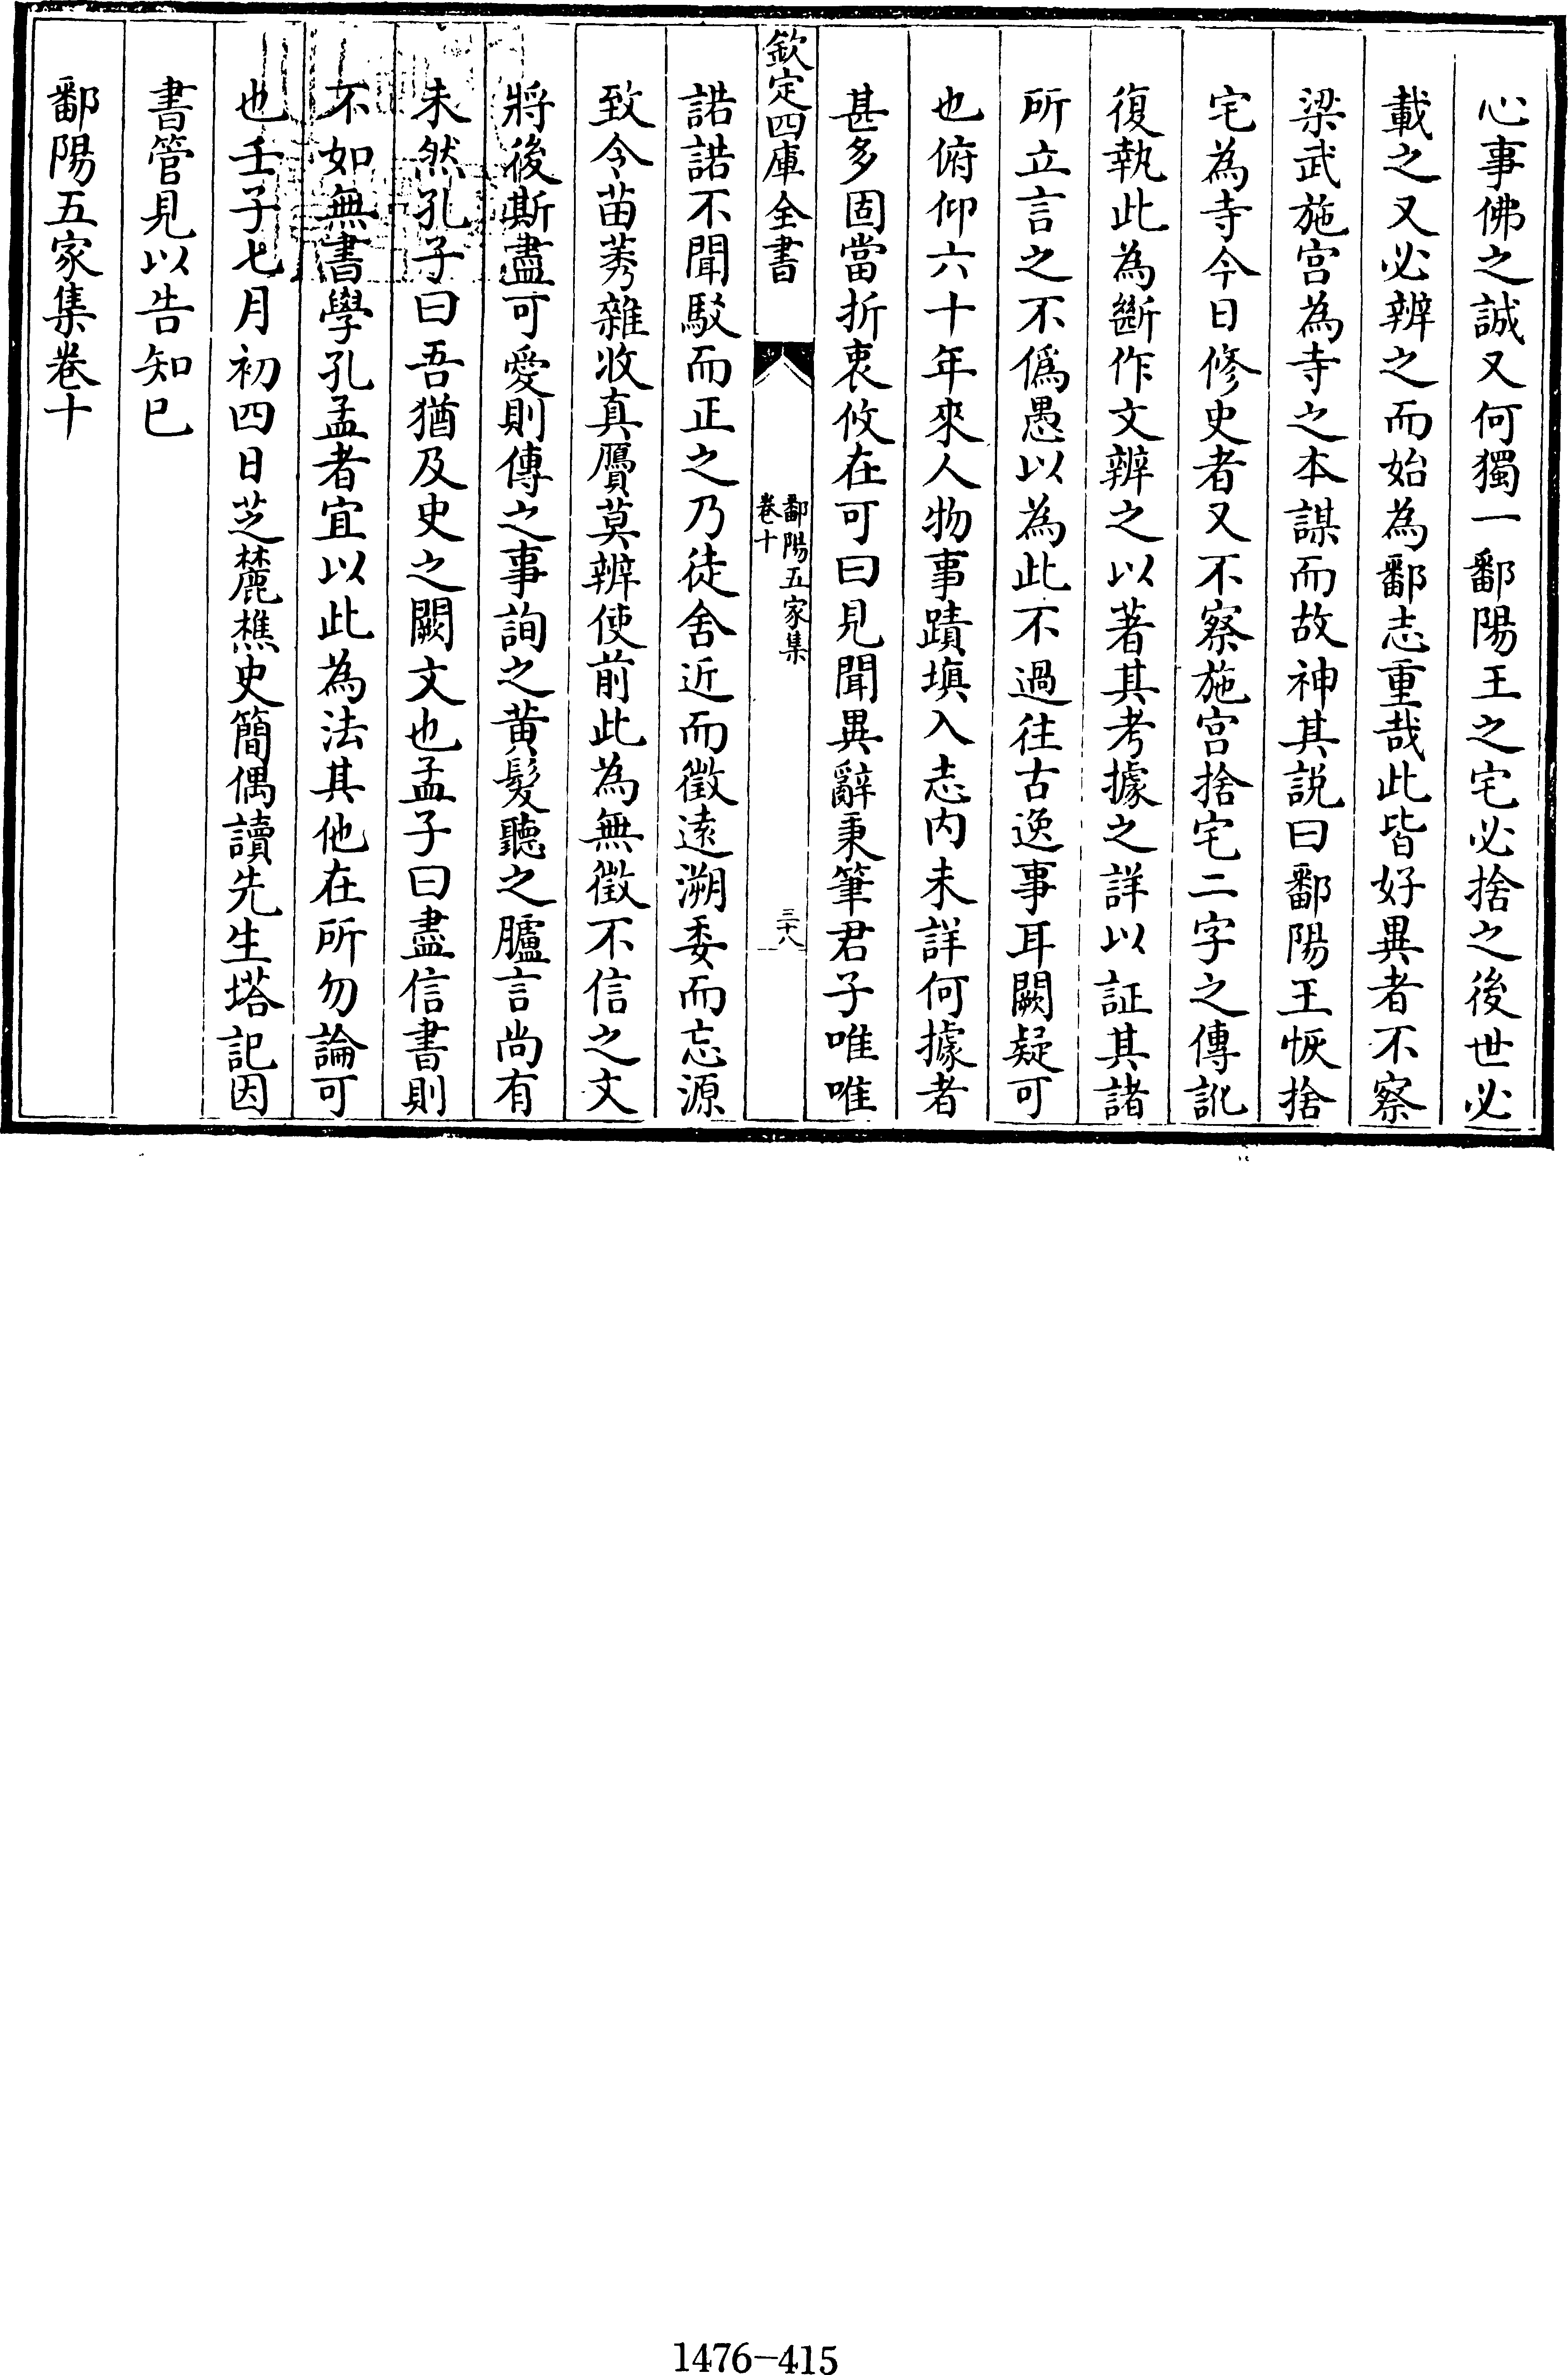 心事佛之誠又何獨一鄱陽王之宅必捨之後世必
載之又必辨之而始為鄱志重哉此皆好異者不察
梁武施宮為寺之本謀而故神其說曰鄱陽王恢捨
宅為寺今日修史者又不察施宮捨宅二字之傳訛
復執此為斷作文辨之以著其考據之詳以証其諸
所立言之不偽愚以為此不過往古逸事耳闕疑可
也俯仰六十年來人物事蹟填入志內未詳何據者
甚多固當折衷攸在可曰見聞異辭秉筆君子唯唯
欽定四庫全書
鄱陽五家集
卷十
三十八
諾諾不聞駁而正之乃徒舍近而徵遠溯委而忘源
致令苗莠雜收真贗莫辨使前此為無徵不信之文
將後斯盡可愛則傳之事詢之黃髮聽之臚言尚有
未然孔子曰吾猶及史之闕文也孟子曰盡信書則
不如無書學孔孟者宜以此為法其他在所勿論可
也壬子七月初四日芝麓樵史簡偶讀先生塔記因
書管見以告知已
鄱陽五家集卷十
1476-415